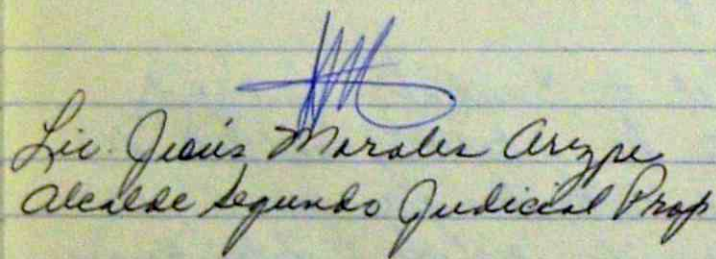 Lic. Jesús Morales Arizpe
Alcalde Segundo Judicial Prop